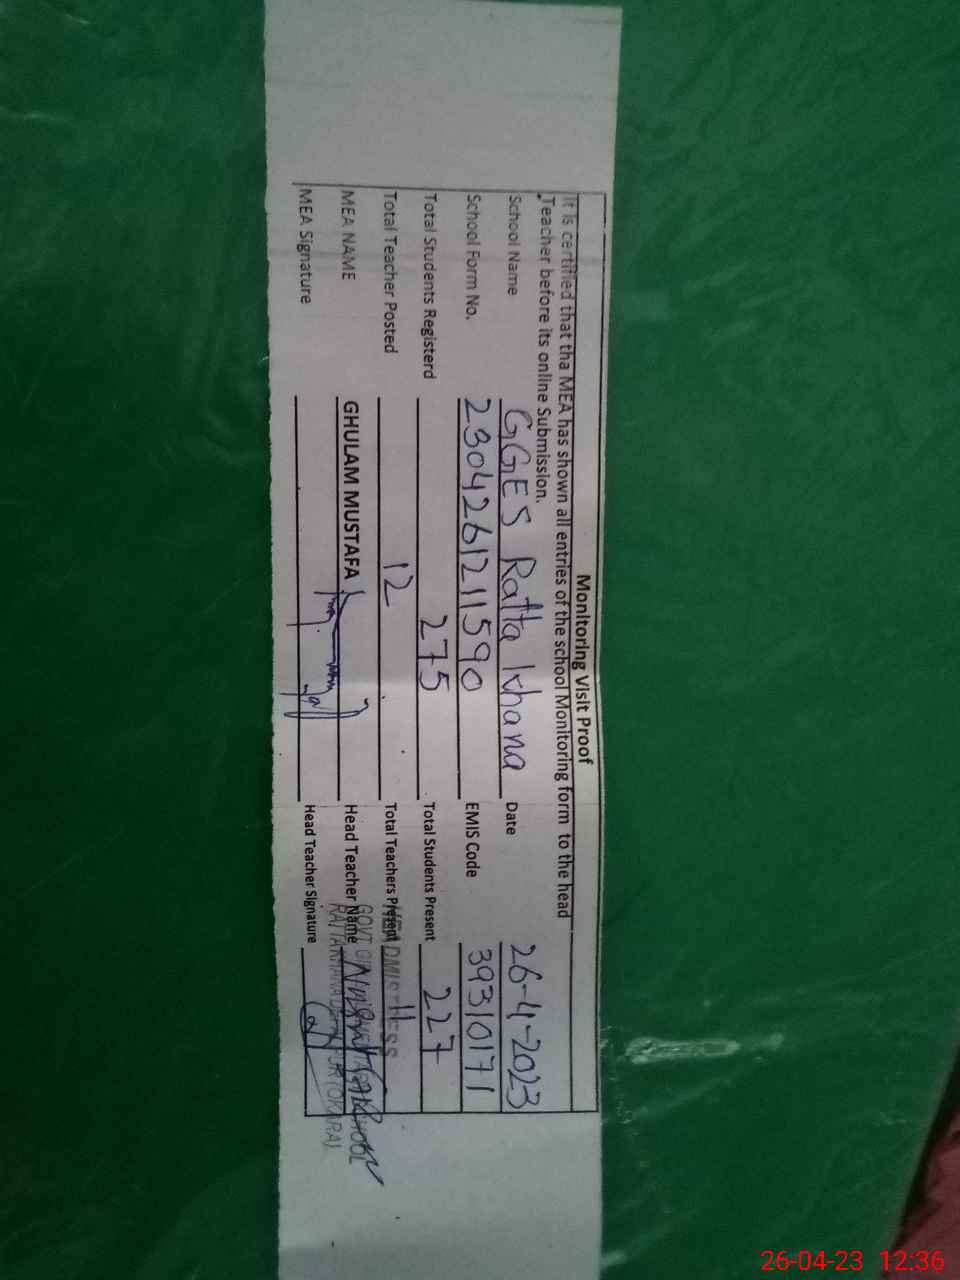 Monitoring Visit Proof
It is certified that tha MEA has shown all entries of the school Monitoring form to the head
Teacher before its online Submission.
School Name GGES Ratta Khana Date 26-4-2023
School Form No. 2304261211590 EMIS Code 39310171
Total Students Registerd 275 Total Students Present 227
Total Teacher Posted 12 Total Teachers Present 11
MEA NAME GHULAM MUSTAFA Head Teacher Name
MEA Signature Head Teacher Signature
HEADMISTRESS
26-04-23 12:36